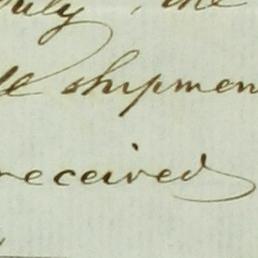 July, the
shipmen
received